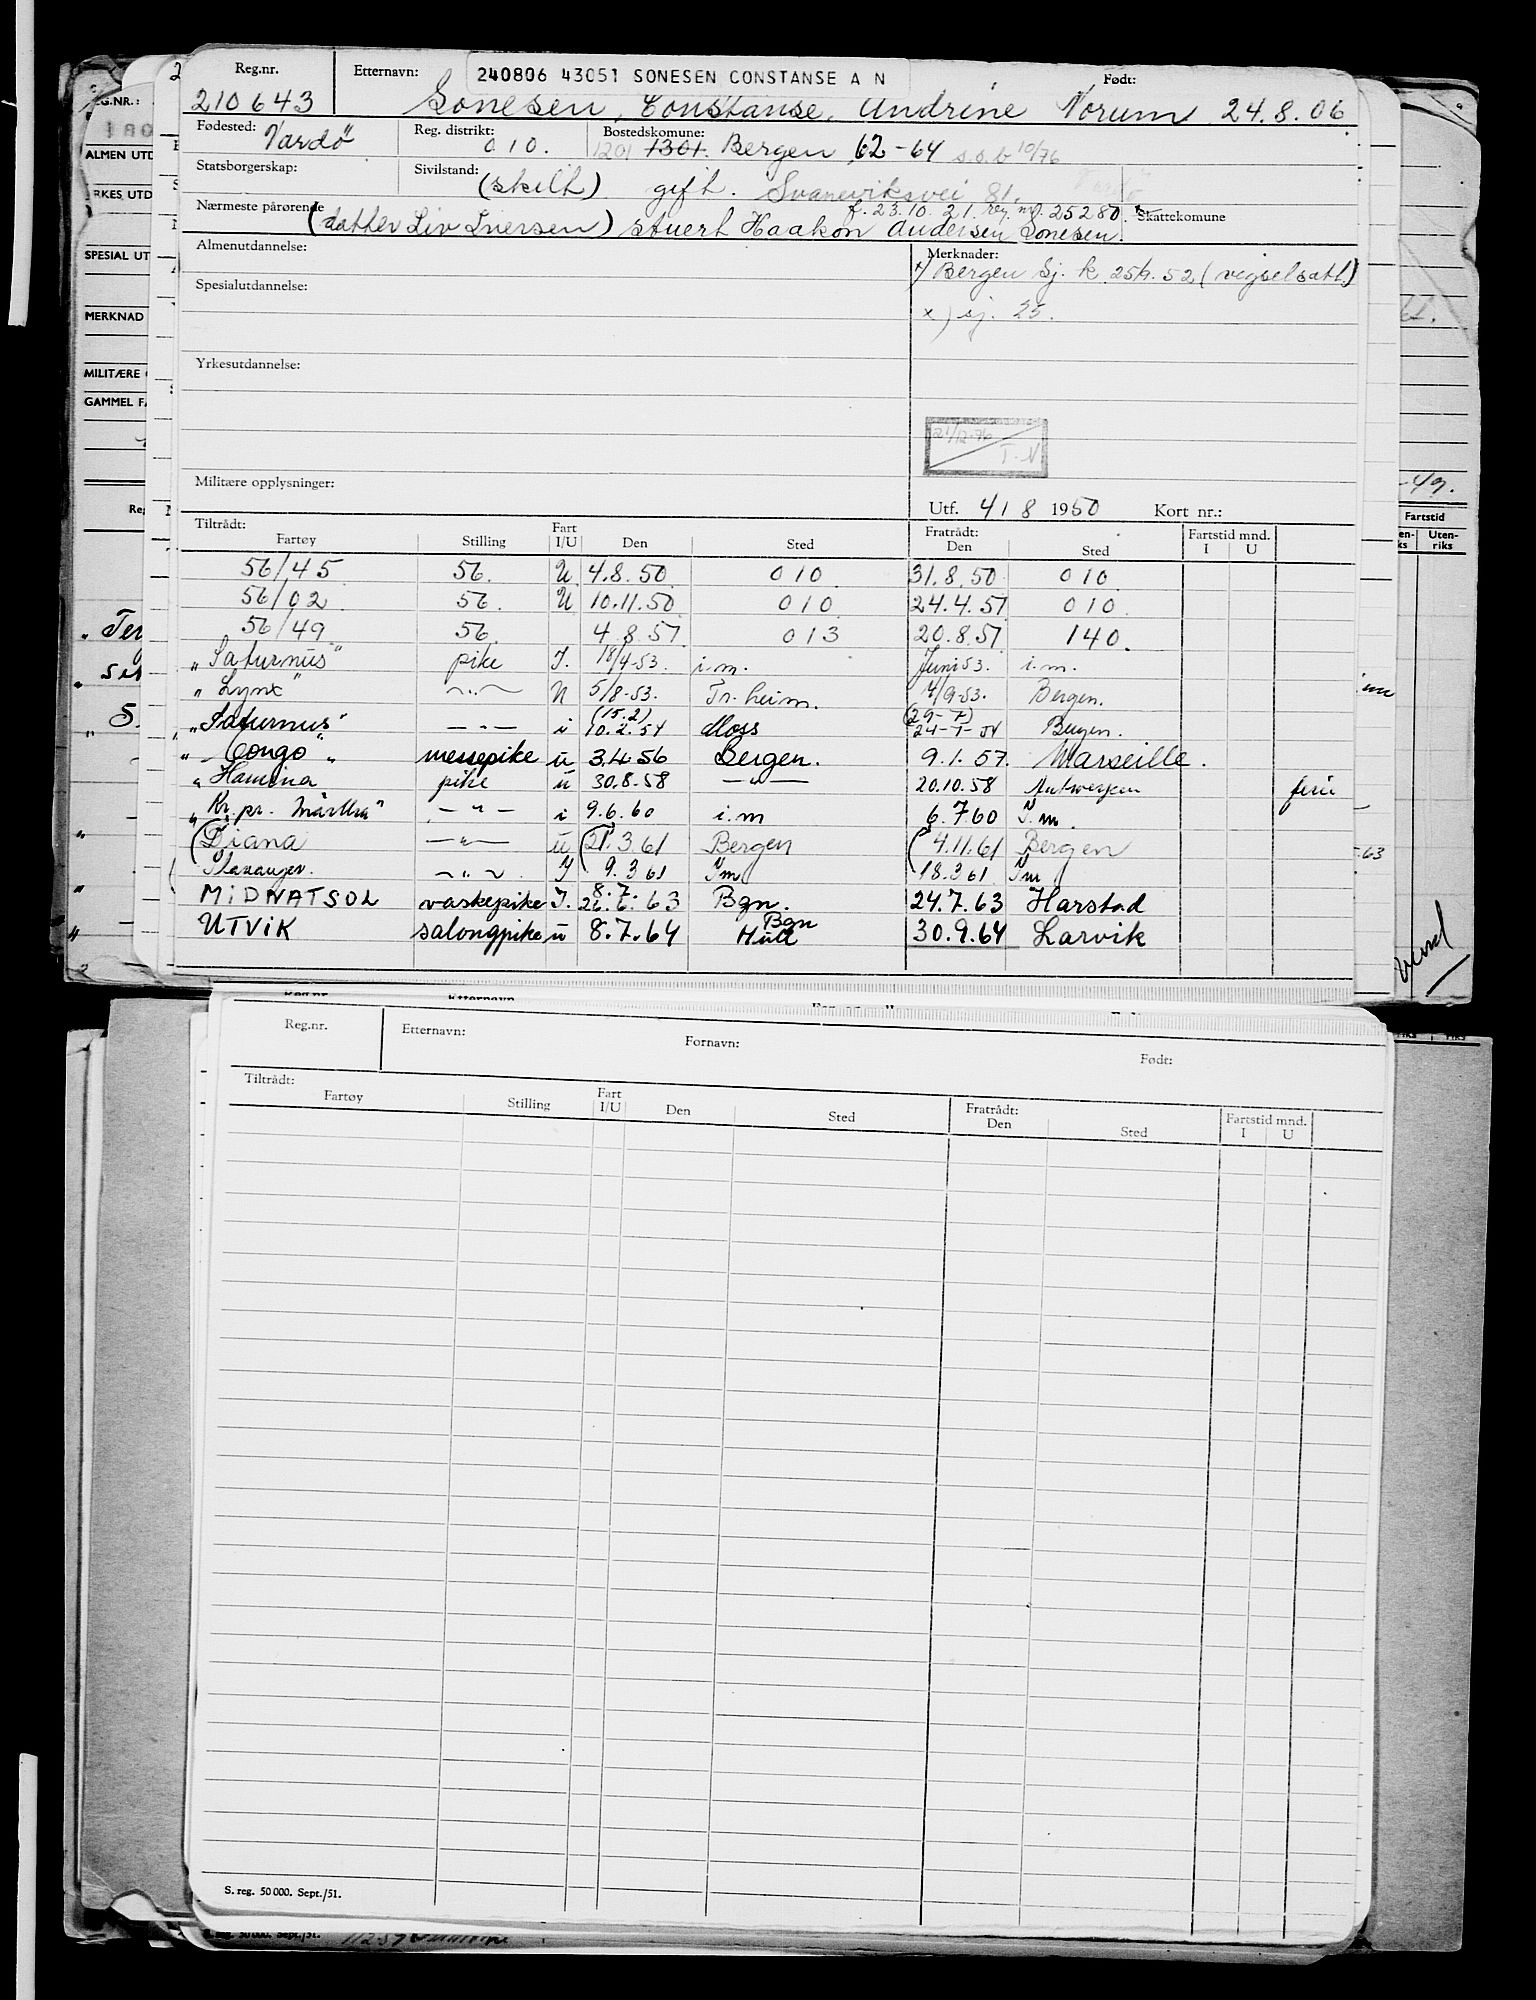 Reg.nr. Etternavn: 240806 43051 SONESEN CONSTANSE A N Født:
210643 Sonesen, Constanse, Andrine Norum 24.8.06
Fødested: Vardö Reg. distrikt: 010. Bostedskomune: 1201 1301. Bergen 62-64 s.s.b 10/76
Statsborgerskap: Sivilstand: (skilt) gift. Svaneviksvei 81.
f. 23.10.21. reg. nr. 25280.
Nærmeste pårørende (datter Liv Iversen) stuert Haakon Andersen Sonesen. Skattekomune
Almenutdannelse: Merknader:
x) Bergen Sj. k. 25/1. 52 (vigselsatt.)
Spesialutdannelse:
x) sj. 25.
Yrkesutdannelse:
21/12-76
T.N
Militære opplysninger:
Utf. 4/8 1950 Kort nr.:
Tiltrådt: Fart Fratrådt: Fartstid mnd.
Fartøy Stilling I/U Den Sted Den Sted I U
56/45 56. U 4.8.50. 010 31.8.50 010
56/02 56. U 10.11.50 010 24.4.51 010.
56/49 56. 4.8.51. 013 20.8.51 140.
"Saturnus" pike I. 18/4-53. i.m. Juni 53. i.m.
"Lynx" —"— U 5/8-53. Tr.heim. 4/9-53. Bergen.
(15.2) (29-7)
"Saturnus" —"— i 10.2.54 Moss 24-7-54 Bergen.
"Congo" messepike u 3.4.56 Bergen. 9.1.57. Marseille.
"Hamina pike u 30.8.58 —"— 20.10.58 Antwerpen ferie
"Kr. pr. Märtha" —"— i 9.6.60 i.m 6.7.60 I.m.
(Diana —"— u (21.3.61 Bergen (4.11.61 Bergen
Stavanger. —"— I 9.3.61 Im 18.3.61 Im
8.7.
MIDNATSOL vaskepike I. 26.6.63 Bgn. 24.7.63 Harstad
Bgn
UTVIK salongpike u 8.7.64 Hull 30.9.64 Larvik
EG.NR.:
ALMEN UTD
RKES UTD
SPESIAL UT
MERKNAD
MILITÆRE
GAMMEL FA
-49.
Fartstid
Uten-
riks
Reg.nr. Etternavn: Fornavn: Født:
Tiltrådt: Fart Fratrådt: Fartstid mnd.
Fartøy Stilling I/U Den Sted Den Sted I U
S. reg. 50 000. Sept./51.